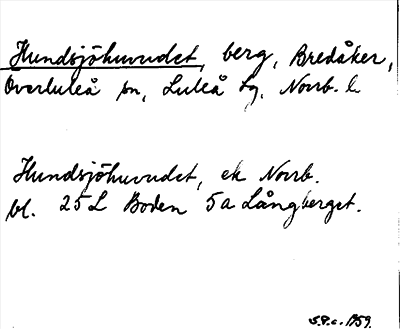 Hundsjöhuvudet, berg, Bredåker,
Överluleå sn, Luleå tg, Norrb. l
Hundsjöhuvudet, ek Norrb.
bl. 25 L Boden 5a Långberget.
S.P.c. 1959.